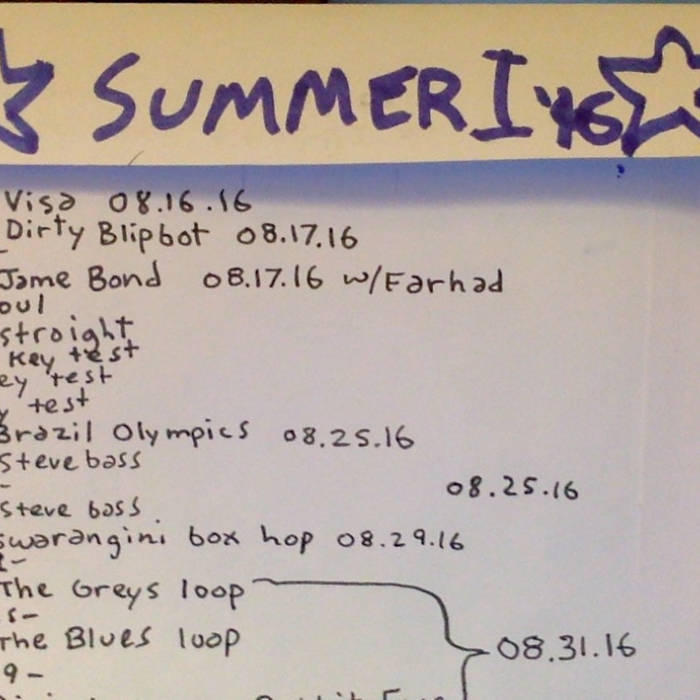 SUMMER I '16
Visa 08.16.16
Dirty Blipbot 08.17.16
Jame Bond 08.17.16 w/Farhad
oul
stroight
Key test
ey test
y test
Brazil Olympics 08.25.16
Steve bass
08.25.16
Steve bass
swarangini box hop 08.29.16
The Greys loop
s-
The Blues loop
08.31.16
9-